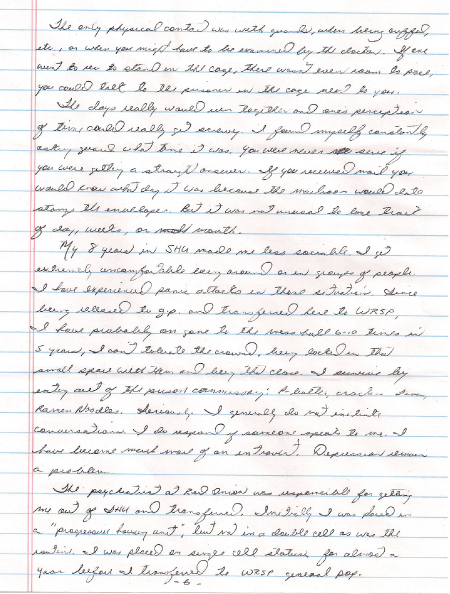 The only physical contact was with guards, when being cuffed,
etc., or when you might have to be examined by the doctor. If one
went to rec to stand in the cage, there wasn't even room to pace,
you could talk to the prisoner in the cage next to you.
The days really would run together and one's perception
of time could really get screwy. I found myself constantly
asking guards what time it was. You were never sure if
you were getting a straight answer. If you received mail you
would know what day it was because the mailroom would date
stamp the envelope. But it was not unusual to lose track
of day, weeks, or month.
My 8 years in SHU made me less sociable. I get
extremely uncomfortable being around or in groups of people.
I have experienced panic attacks in these situation. Since
being released to g.p. and transferred here to WRSP,
I have probably gone to the mess hall 6-10 times in
5 years, I can't tolerate the crowd, being locked in that
small space with them and being that close. I survive by
eating out of the prison commissary: P. butter, crackers
Ramen Noodles. Seriously. I generally do not initiate
conversation. I do respond if someone speaks to me. I
have become much more of an introvert. Depression remain
a problem.
The psychiatrist at Red Onion was responsible for getting
me out of SHU and transferred. Initially I was placed in
a "progressive housing unit", but not in a double cell as was the
routine. I was placed on single cell status for almost a
year before I transferred to WRSP general pop.
-6-